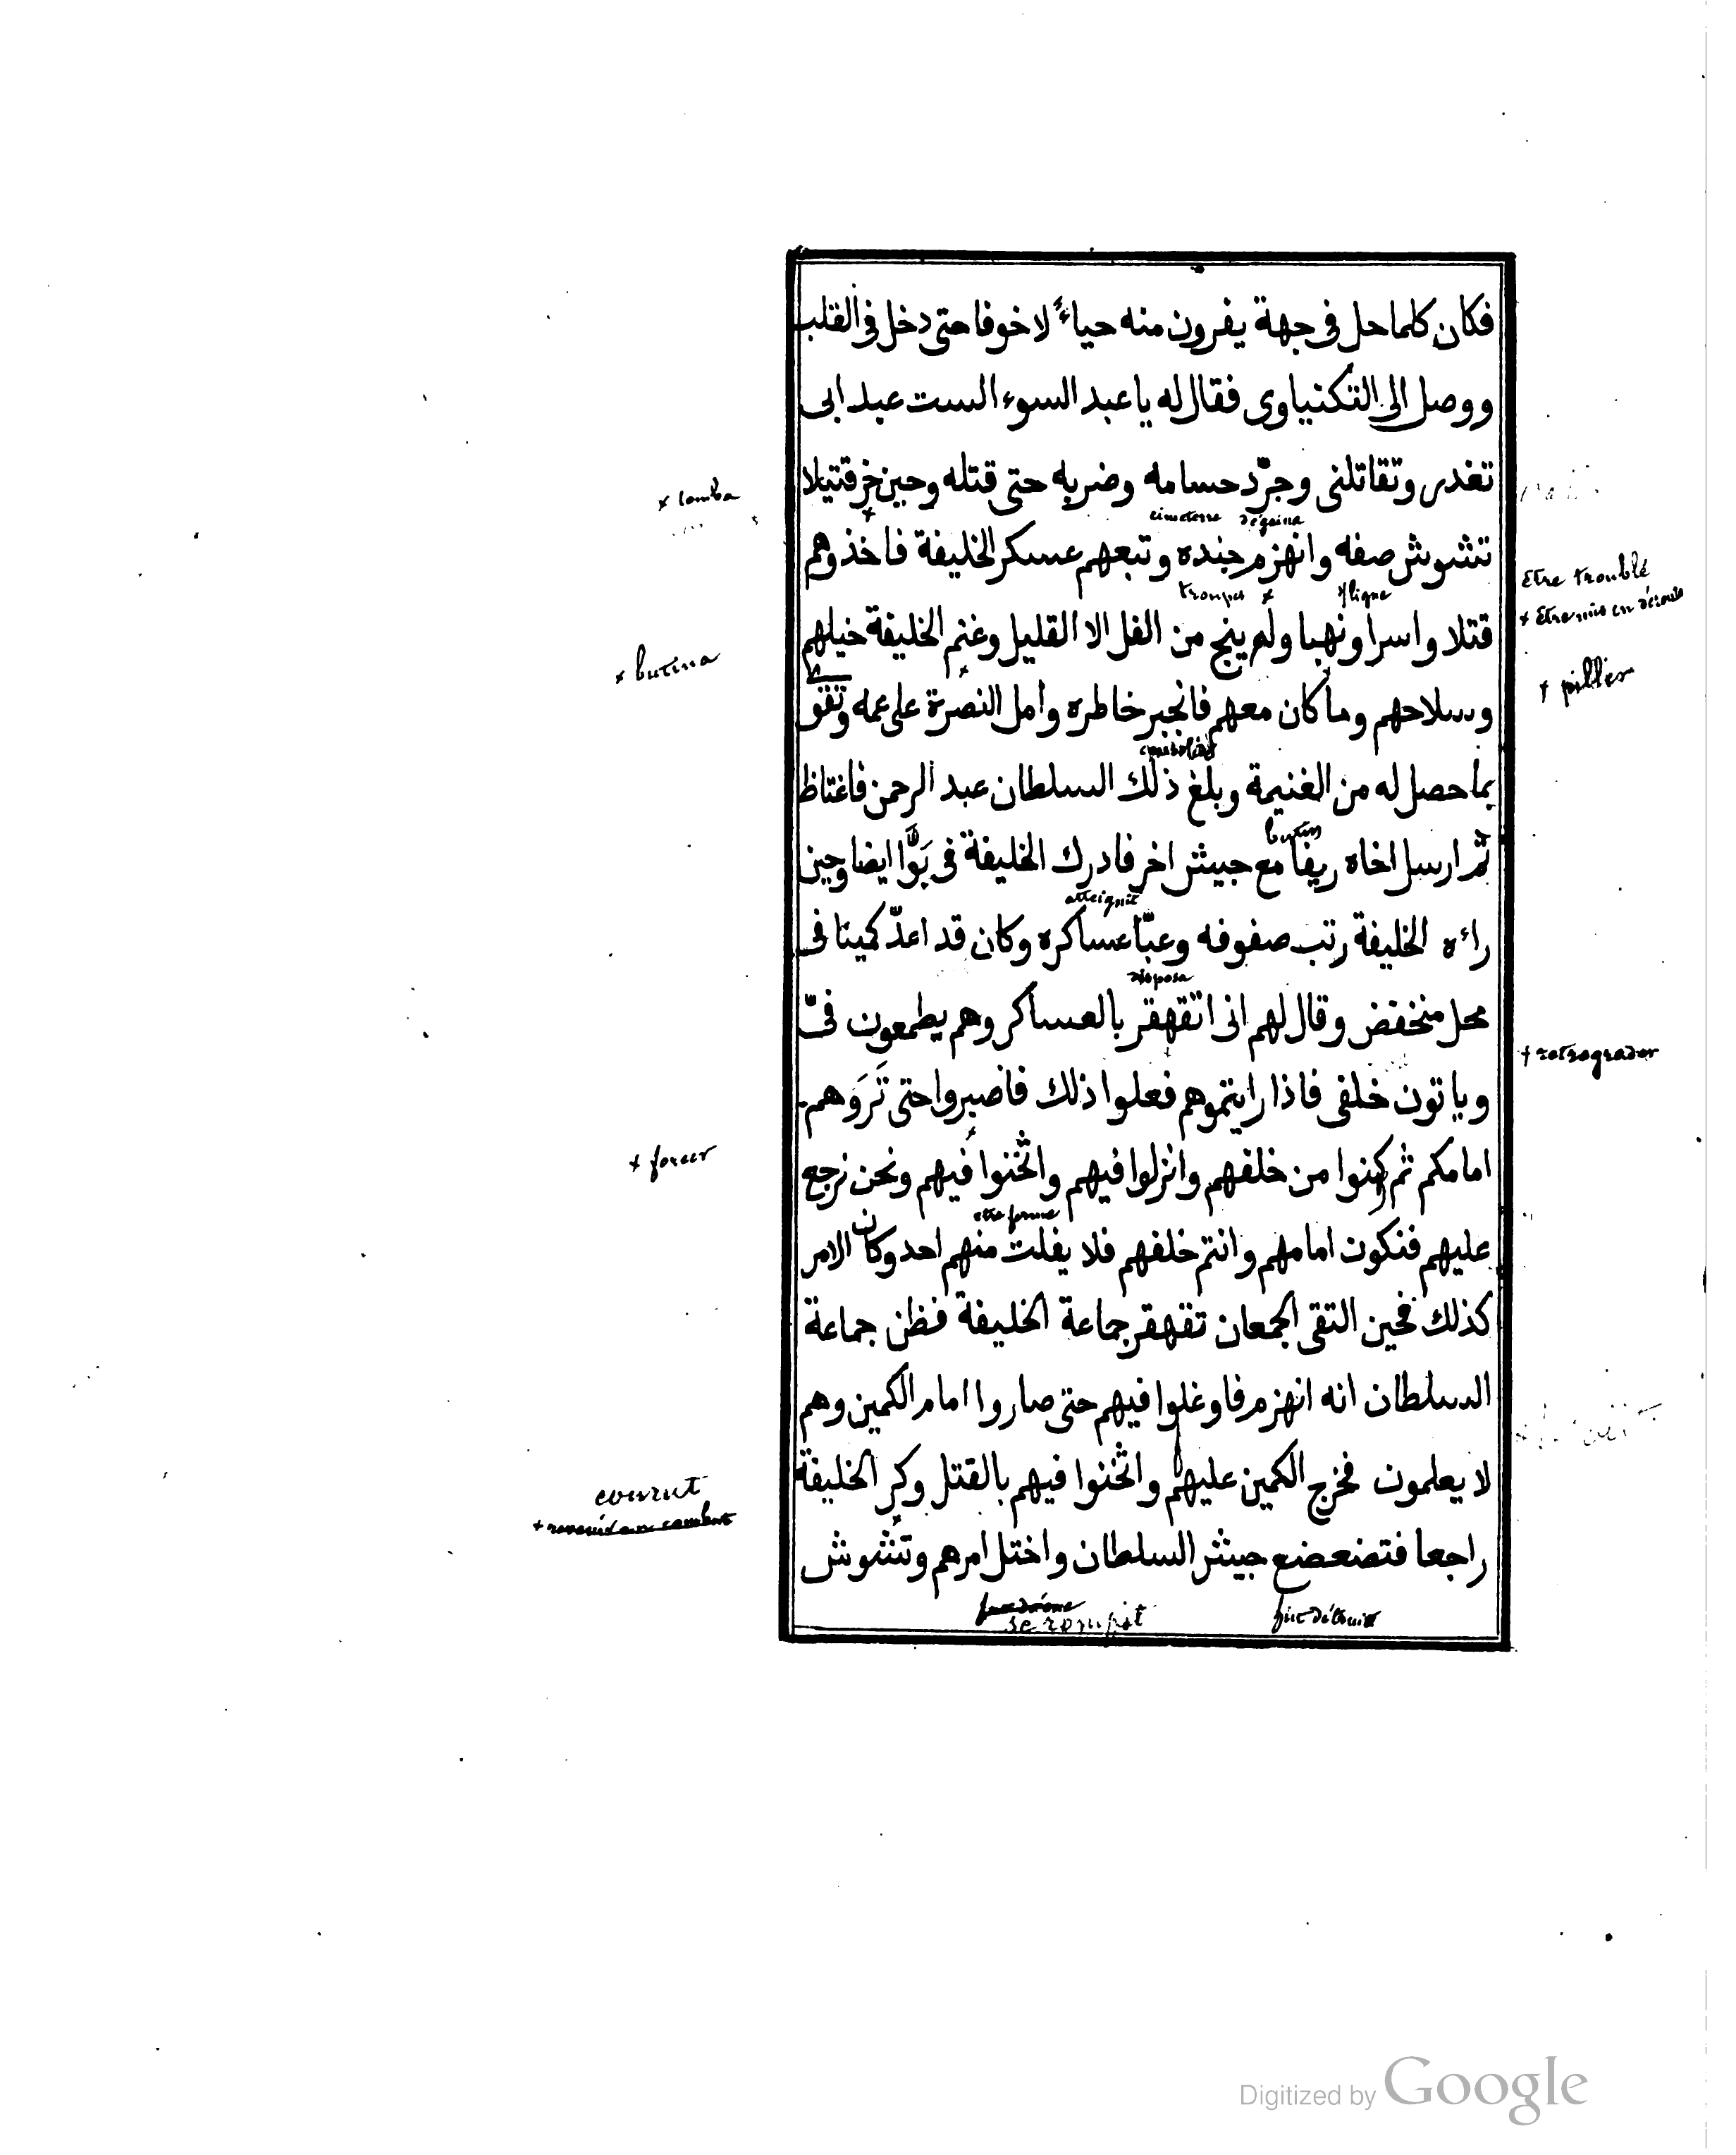 فكان كلما حل فى جهة يفرون منه حياءً لا خوفا حتى دخل فى القلب
ووصل الى التكنياوى فقال له يا عبد السوء الست عبد ابى
تغدر وتقاتلنى وجرّد حسامه وضربه حتى قتله وحين خر قتيلا
+ tomba
cimeterre dégaina
تشوش صفه وانهزم جنده وتبعهم عسكر الخليفة فاخذوهم
troupes + ligne
Etre troublé
+ Etre mis en déroute
قتلا واسرا ونهبا ولم ينج من الفل الا القليل وغنم الخليفة خيلهم
+ butina
+ piller
وسلاحهم وما كان معهم فانجبر خاطره وامل النصرة على عمه وتقوى
بما حصل له من الغنيمة وبلغ ذلك السلطان عبد الرحمن فاغتاظ
butin
ثم ارسل اخاه ريفا مع جيش اخر فادرك الخليفة فى بَوّا ايضا وحين
atteignit
راءه الخليفة رتب صفوفه وعبّا عساكره وكان قد اعدّ كمينا فى
disposa
محل منخفض وقال لهم انى اتقهقر بالعساكر وهم يطمعون فىّ
+ retrograder
وياتون خلفى فاذا رايتموهم فعلوا ذلك فاصبروا حتى تَرَوهم
امامكم ثم اكمنوا من خلفهم وانزلوا فيهم واثخنوا فيهم ونحن نرجع
+ forcer
etre ferme
عليهم فنكون امامهم وانتم خلفهم فلا يفلت منهم احد وكان الامر
كذلك فحين التقى الجمعان تقهقر جماعة الخليفة فظن جماعة
السلطان انه انهزم فاوغلوا فيهم حتى صاروا امام الكمين وهم
لا يعلمون فخرج الكمين عليهم واثخنوا فيهم بالقتل وكر الخليفة
courut
+ revenir au combat
راجعا فتضعضع جيش السلطان واختل امرهم وتشوش
se rompit
fut détruit
Digitized by Google